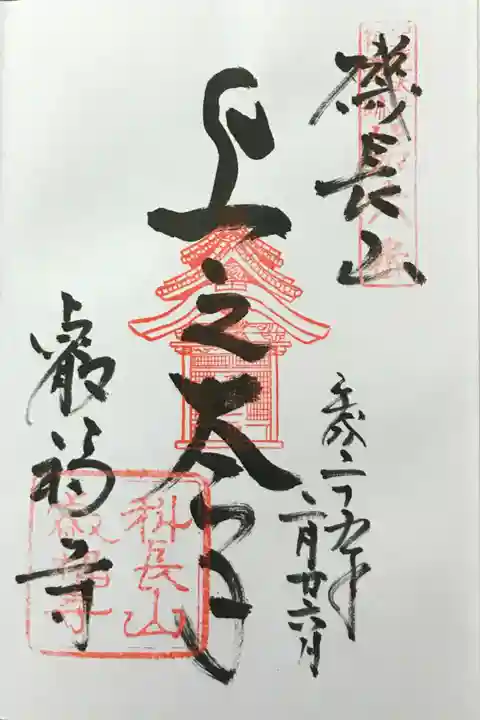 磯長山
上之太子
二十九年
二月廿六日
叡福寺
科長山
叡福寺